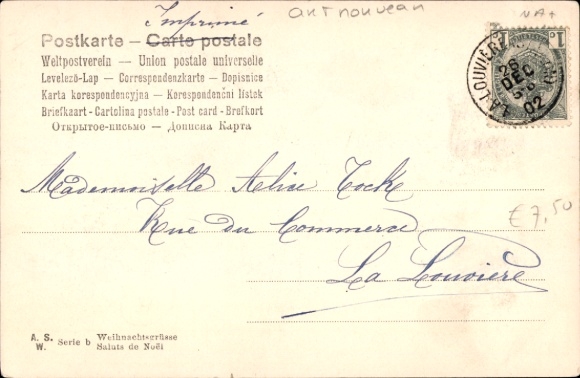 Imprimé
art nouveau
Postkarte — Carte postale
Weltpostverein — Union postale universelle
Levelező-Lap — Correspondenzkarte — Dopisnice
Karta korespondencyjna — Korespondenční lístek
Briefkaart - Cartolina postale - Post card - Brefkort
Открытое-письмо — Дописна Карта
1c 1c
LA LOUVIÈRE
26
DEC
02
Mademoiselle Alice Cock
Rue du Commerce
La Louvière
€ 7,50
A. S. W. Serie b Weihnachtsgrüsse
Saluts de Noël